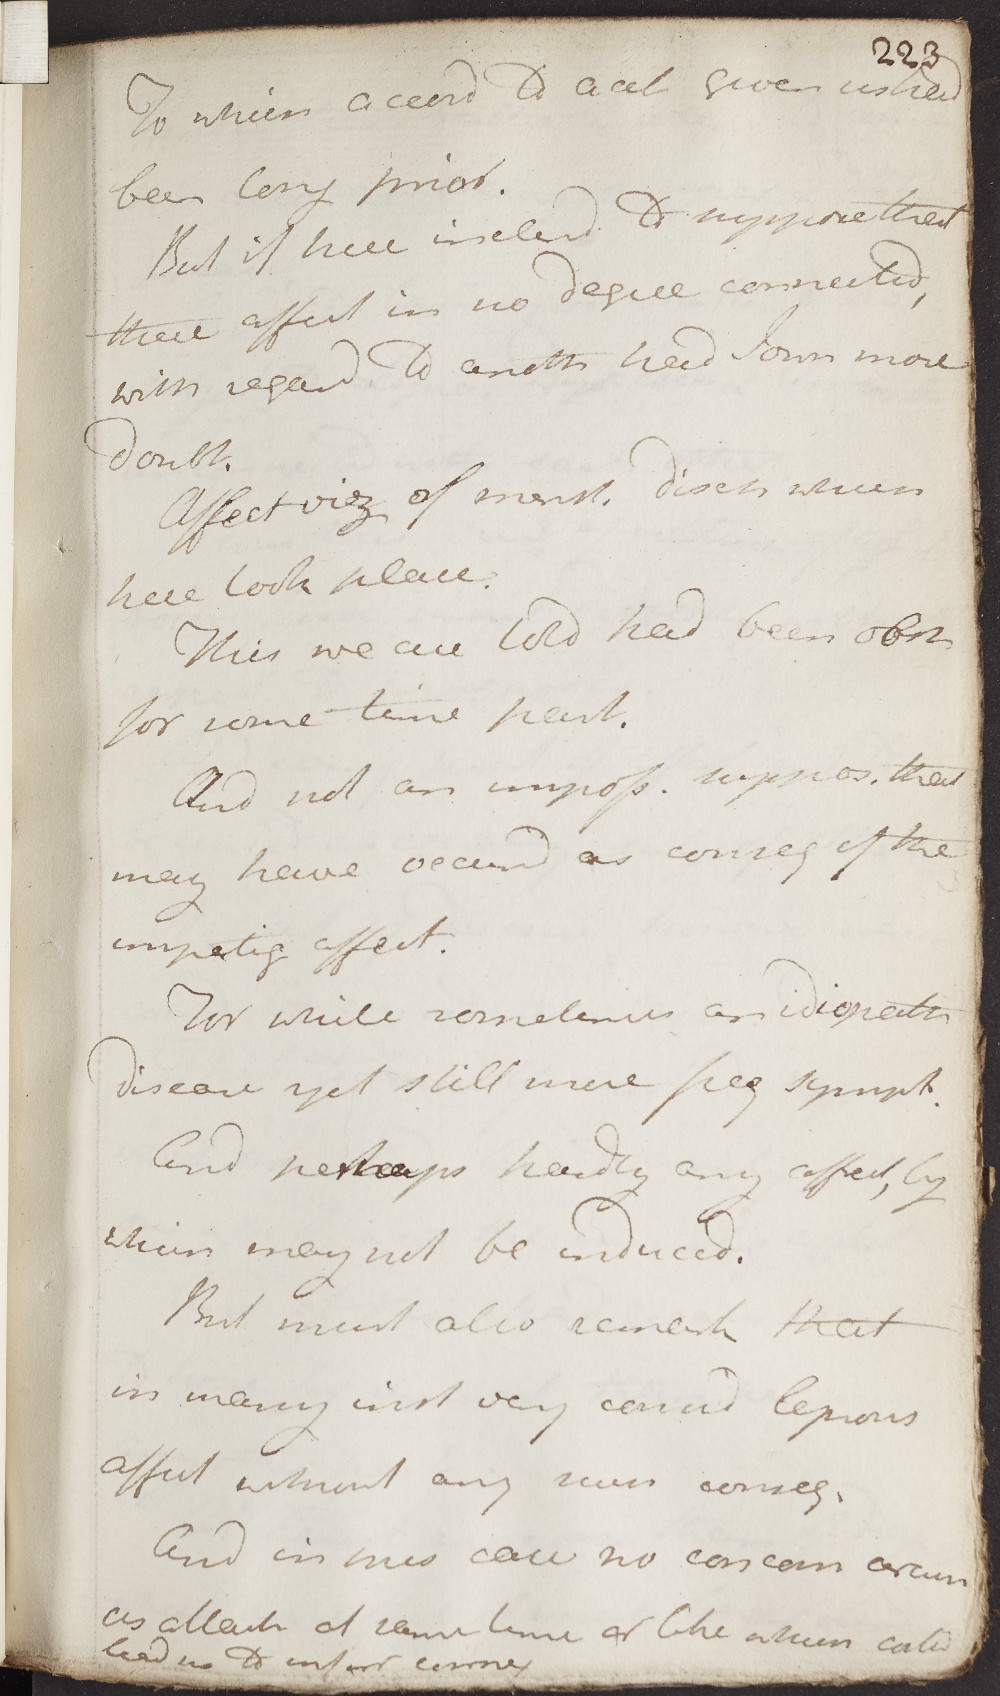 223
To which accord to acct given us had
been long prior.
But if here inclend to suppose that
these affect in no degree connected,
with regard to anoth head Iown more
doubt.
Affect viez of menst. disch which
here took place.
This we are told had been obst
for some time past.
And not an imposs. suppos. that
may have occurd as conseq of the
impetig affect.
For while sometimes an idiopath
disease yet still more freq sympt.
And perhaps hardly any affect, by
which may not be induced.
But must also remark that
in many inst very consid leprous
affect without any such conseq.
And in this case no concom circum
as attack at same time or like which could
lead us to infer connex